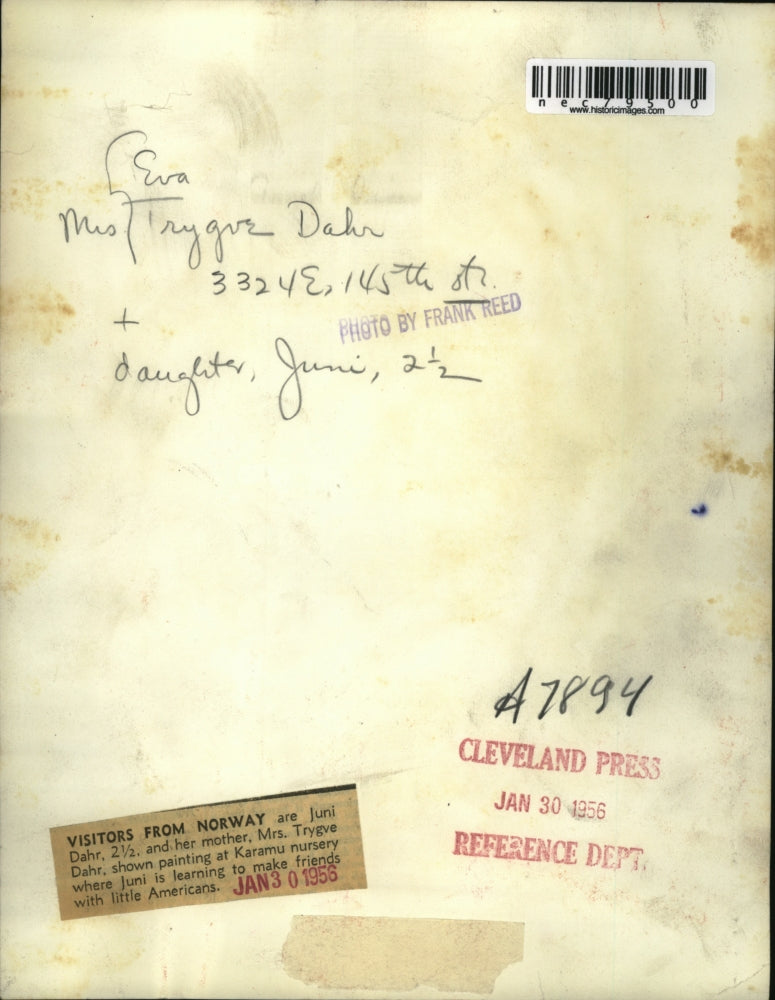 nec79500
www.historicimages.com
Eva
Mrs Trygve Dahr
3324 E. 145th str.
PHOTO BY FRANK REED
+
daughter, Juni, 2½
A7894
CLEVELAND PRESS
JAN 30 1956
REFERENCE DEPT.
VISITORS FROM NORWAY are Juni
Dahr, 2½, and her mother, Mrs. Trygve
Dahr, shown painting at Karamu nursery
where Juni is learning to make friends
with little Americans.
JAN 30 1956